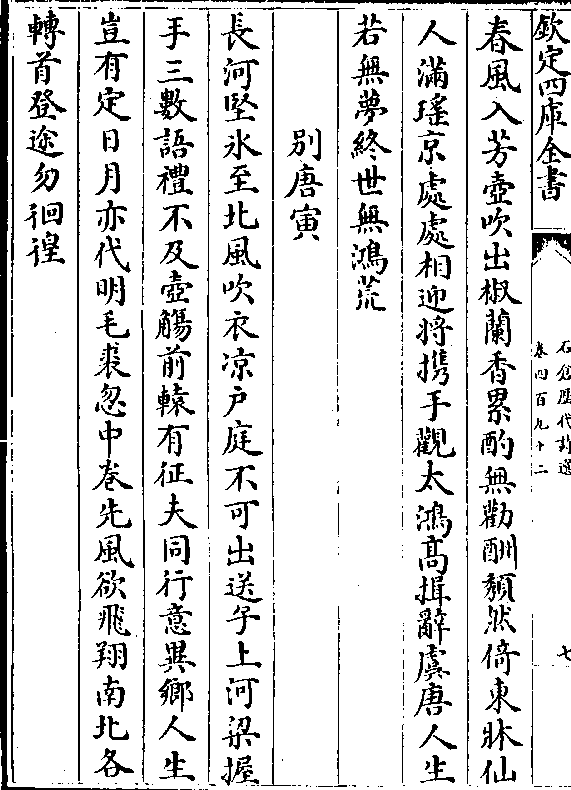 欽定四庫全書
石倉歷代詩選
卷四百九十二
七
春風入芳壺吹出椒蘭香累酌無勸酬頽然倚東牀仙
人滿瑤京處處相迎將携手觀太鴻髙揖辭虞唐人生
若無夢終世無鴻荒
别唐寅
長河堅氷至北風吹衣凉户庭不可出送子上河梁握
手三數語禮不及壺觴前轅有征夫同行意異鄉人生
豈有定日月亦代明毛裘忽中卷先風欲飛翔南北各
轉首登途勿徊徨